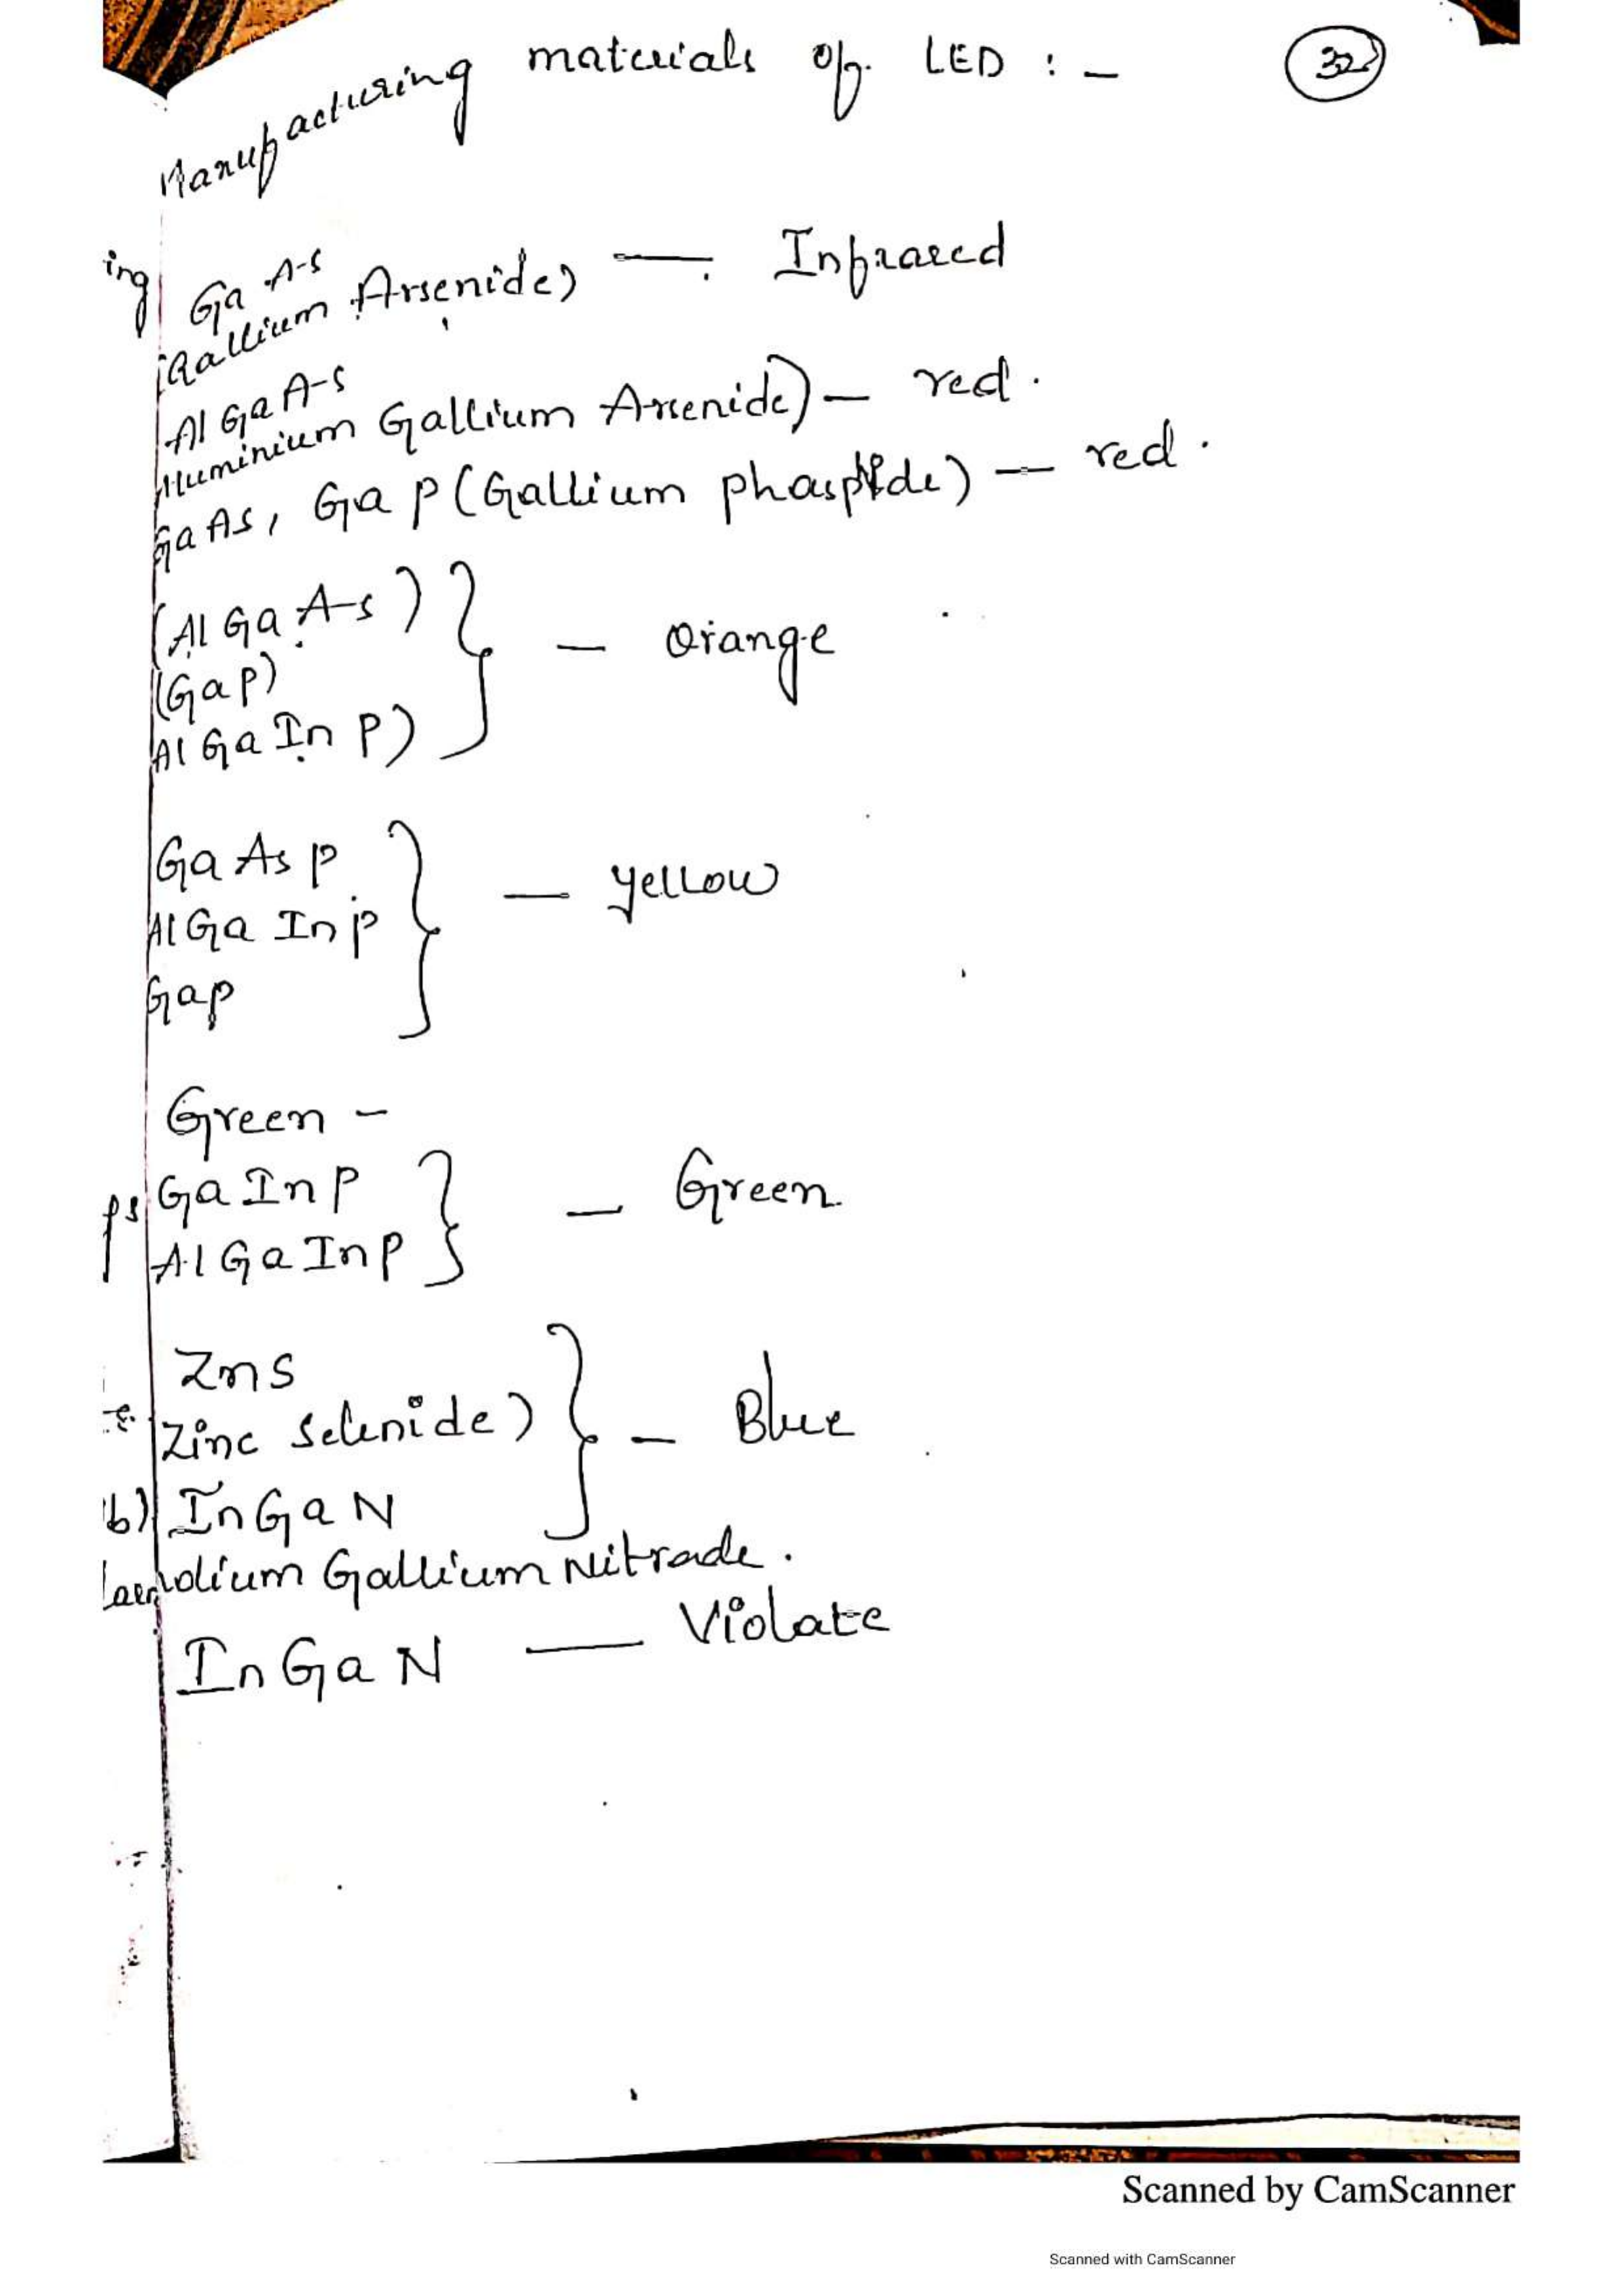 Manufacturing materials of LED : -
32
ing
Ga As
(Gallium Arsenide) — Infrared
Al Ga As
Aluminium Gallium Arsenide) — red.
GaAs, Gap (Gallium phasphide) — red.
(Al Ga As)
(Gap)
Al Ga In P)
— Orange
Ga As p
Al Ga In p
Gap
— yellow
Green -
Ga In P
Al Ga In P
— Green
ZnS
Zinc Selenide)
— Blue
b) In Ga N
Gallium Nitrade.
In Ga N — Violate
Scanned by CamScanner
Scanned with CamScanner